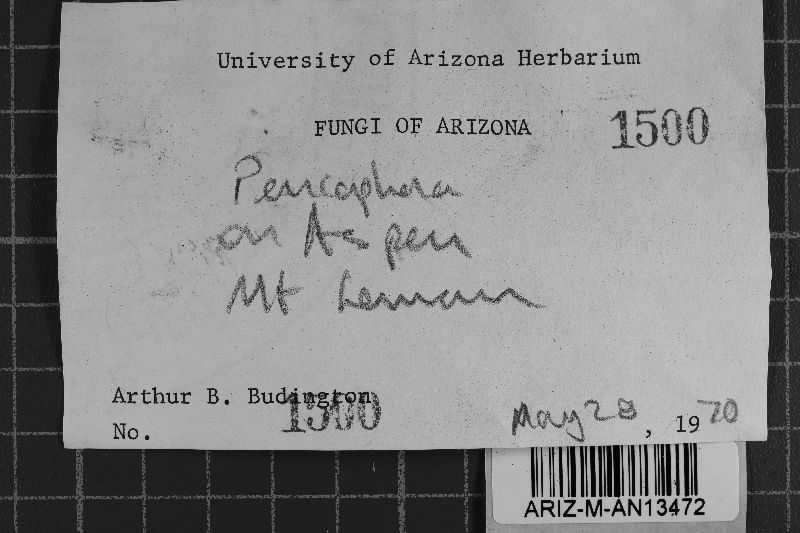 University of Arizona Herbarium
FUNGI OF ARIZONA 1500
Peniophora
on Aspen
Mt Lemmon
Arthur B. Budington
No. 1500
May 28, 1970
ARIZ-M-AN13472